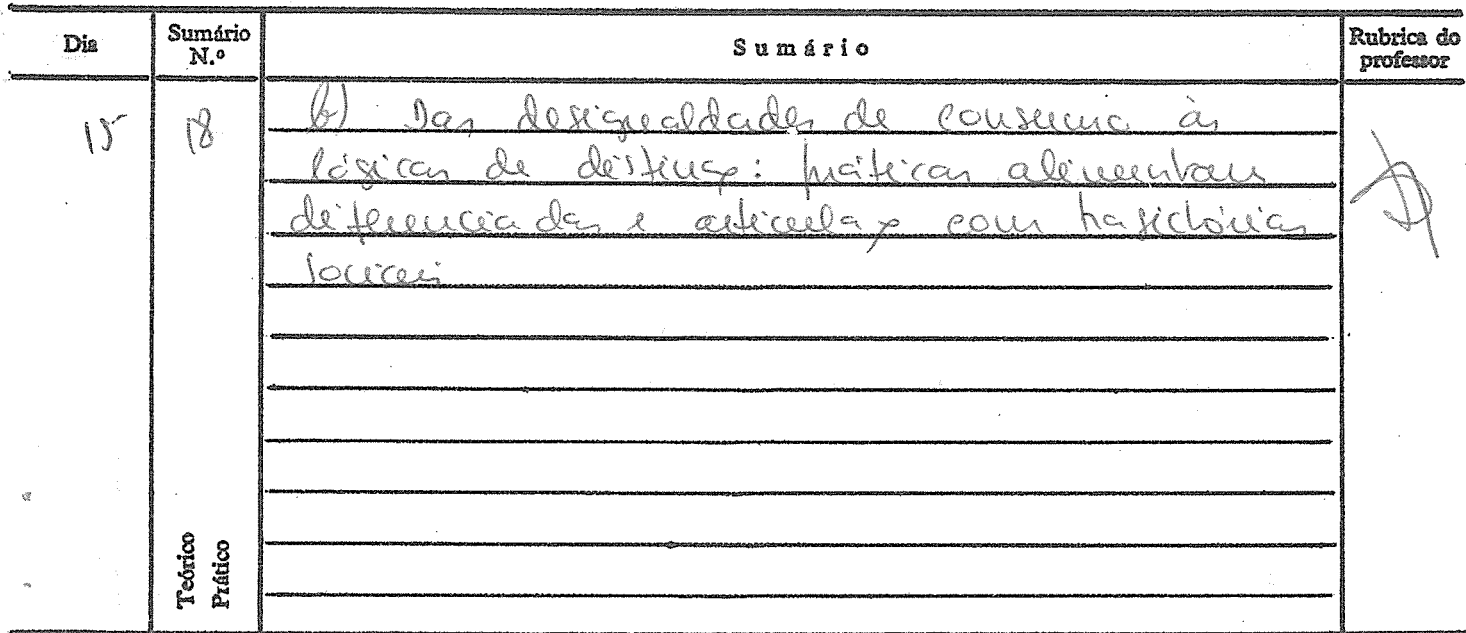 Dia Sumário N.º Sumário Rubrica do professor
15 18 b) Das desigualdades de consumo às
lógicas de distinção: práticas alimentares
diferenciadas e articulação com trajectórias
sociais
Teórico
Prático